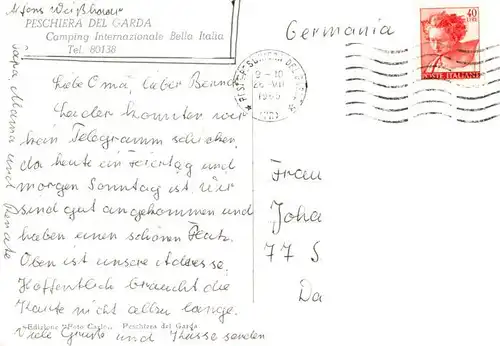 Alfons Weißhaar
PESCHIERA DEL GARDA
Camping Internazionale Bella Italia
Tel. 80138
Liebe Oma, lieber Bernd
Leider konnten wir
kein Telegramm schicken,
da heute ein Feiertag und
morgen Sonntag ist. Wir
sind gut angekommen und
haben einen schönen Platz.
Oben ist unsere Adresse.
Hoffentlich braucht die
Karte nicht allzu lange.
Viele Grüße und Küsse senden
Papa, Mama und Renate
Edizione "Foto Peschiera del Garda
Germania
40
LIRE
POSTE ITALIANE
PESCHIERA DEL
9-10
26.VII
Frau
Joha
77 S
Da